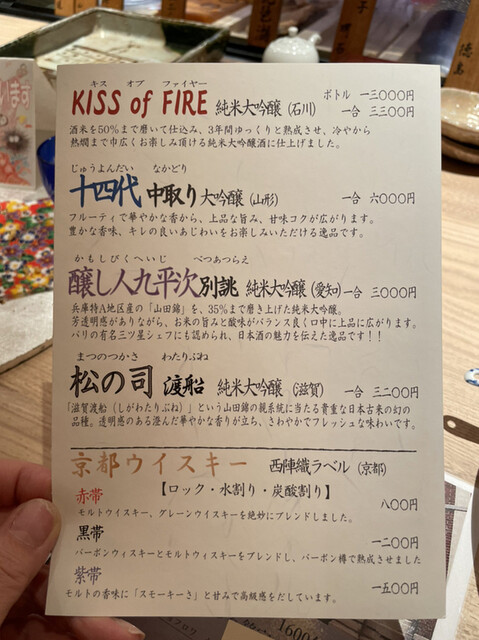 キス オブ ファイヤー
KISS of FIRE 純米大吟醸 (石川) ボトル 一三〇〇〇円
一合 三三〇〇円
酒米を50%まで磨いて仕込み、3年間ゆっくりと熟成させ、冷やから
熱燗まで巾広くお楽しみ頂ける純米大吟醸酒に仕上げました。
じゅうよんだい なかどり
十四代 中取り 大吟醸 (山形) 一合 六〇〇〇円
フルーティで華やかな香から、上品な旨み、甘味コクが広がります。
豊かな香味、キレの良いあじわいをお楽しみいただける逸品です。
かもしびくへいじ べつあつらえ
醸し人九平次 別誂 純米大吟醸 (愛知) 一合 三〇〇〇円
兵庫特A地区産の「山田錦」を、35%まで磨き上げた純米大吟醸。
芳透明感がありながら、お米の旨みと酸味がバランス良く口中に上品に広がります。
パリの有名三ツ星シェフにも認められ、日本酒の魅力を伝えた逸品です!!
まつのつかさ わたりぶね
松の司 渡船 純米大吟醸 (滋賀) 一合 三二〇〇円
「滋賀渡船(しがわたりぶね)」という山田錦の親系統に当たる貴重な日本古来の幻の
品種。透明感のある澄んだ華やかな香りが立ち、さわやかでフレッシュな味わいです。
京都ウイスキー 西陣織ラベル (京都)
【ロック・水割り・炭酸割り】
赤帯 八〇〇円
モルトウイスキー、グレーンウイスキーを絶妙にブレンドしました。
黒帯 一二〇〇円
バーボンウィスキーとモルトウィスキーをブレンドし、バーボン樽で熟成させました
紫帯 一五〇〇円
モルトの香味に「スモーキーさ」と甘みで高級感をだしています。
1600